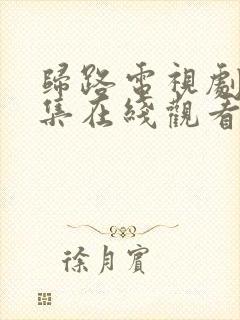 歸路電視劇
集在綫觀看
徐月賓